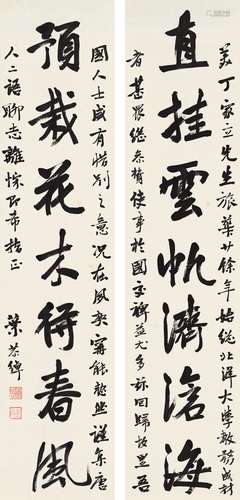 美丁家立先生旅華廿餘年始從北洋大學教務成材
直挂雲帆濟滄海
者甚眾繼參贊使事於國交裨益尤多 回歸故里吾
國人士咸有惜別之意況在 契甯能 然謹集唐
預栽花木待春風
人二語聊志離悰即希指正
葉恭綽